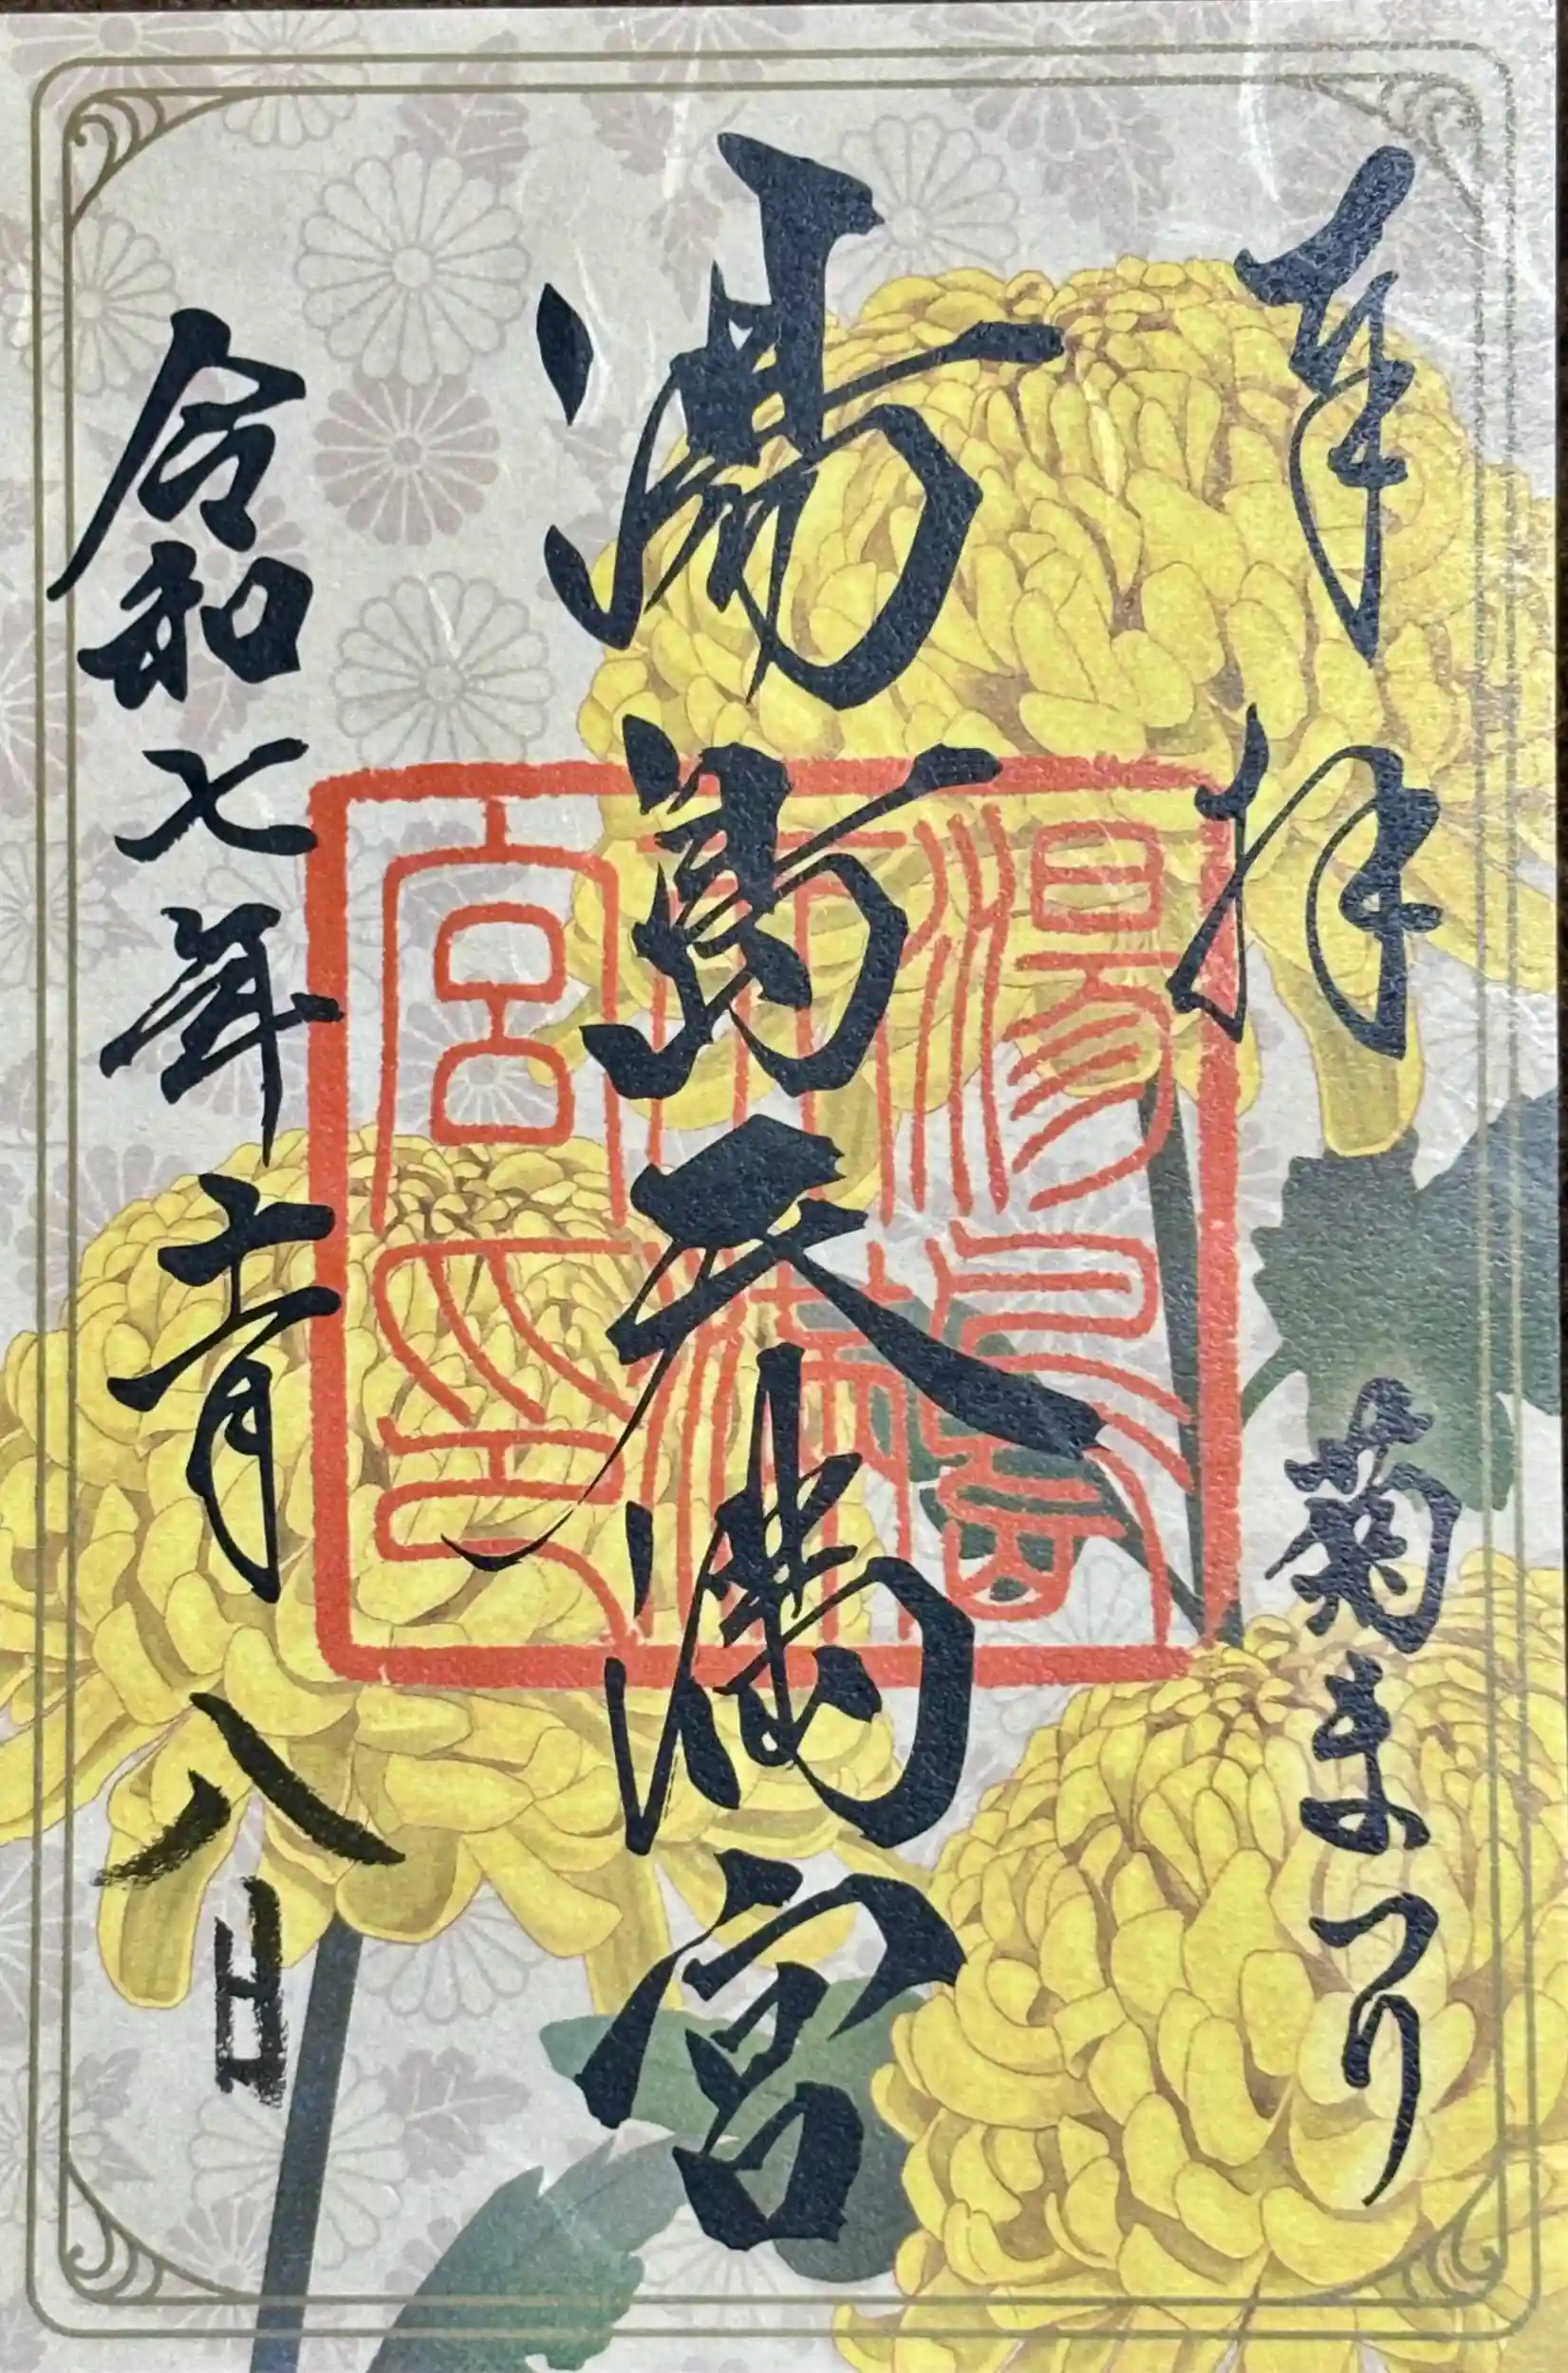 奉拝
菊まつり
湯島天満宮
湯島天満宮之印
令和七年十一月八日